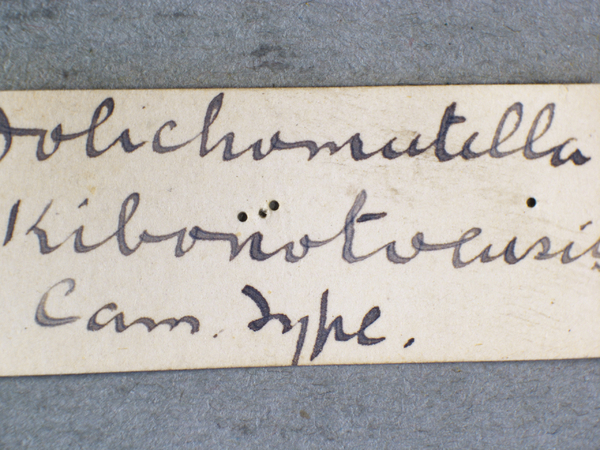 Dolichomutilla
Kibonotoensis
Cam. Type.